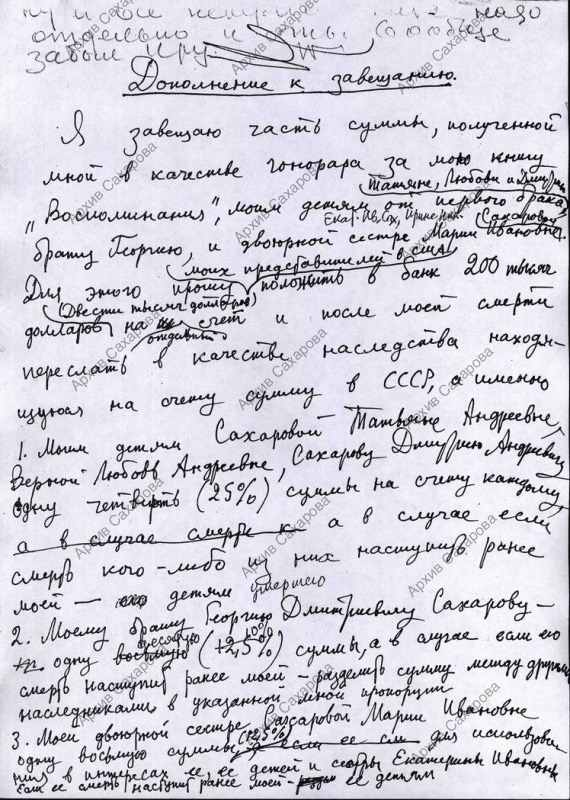 отдельно и
забыл Иру.
Дополнение к завещанию.
Я завещаю часть суммы, полученной
мной в качестве гонорара за мою книгу
Татьяне, Любови и Дмитрию
„Воспоминания", моим детям от первого брака,
Екат. Ив. Сах, Ирине
Сахаровой
брату Георгию, и двоюрной сестре Марии Ивановне.
моих представителей в США
Для этого прошу положить в банк 200 тысяч
(Двести тысяч долларов)
долларов на счет и после моей смерти
отдавить
переслать в качестве наследства находя-
щуюся на счету сумму в СССР, а именно
1. Моим детям Сахаровой Татьяне Андреевне,
Верной Любовь Андреевне, Сахарову Дмитрию Андреевичу
одну четверть (25%) суммы на счету каждому,
а в случае смерти к а в случае если
смерть кого-либо из них наступит ранее
моей — его детям умершего
2. Моему брату Георгию Дмитриевичу Сахарову —
десятую 10%
одну восьмую (12,5%) суммы, а в случае если его
смерть наступит ранее моей – разделить сумму между другими
наследниками в указанной мной пропорции
3. Моей двоюрной сестре Сахаровой Марии Ивановне
(12,5%)
одну восьмую суммы, а если ее см для использова-
ния в интересах ее, ее детей и сестры Екатерины Ивановны
Если ее смерть наступит ранее моей – ее детям
Архив Сахарова